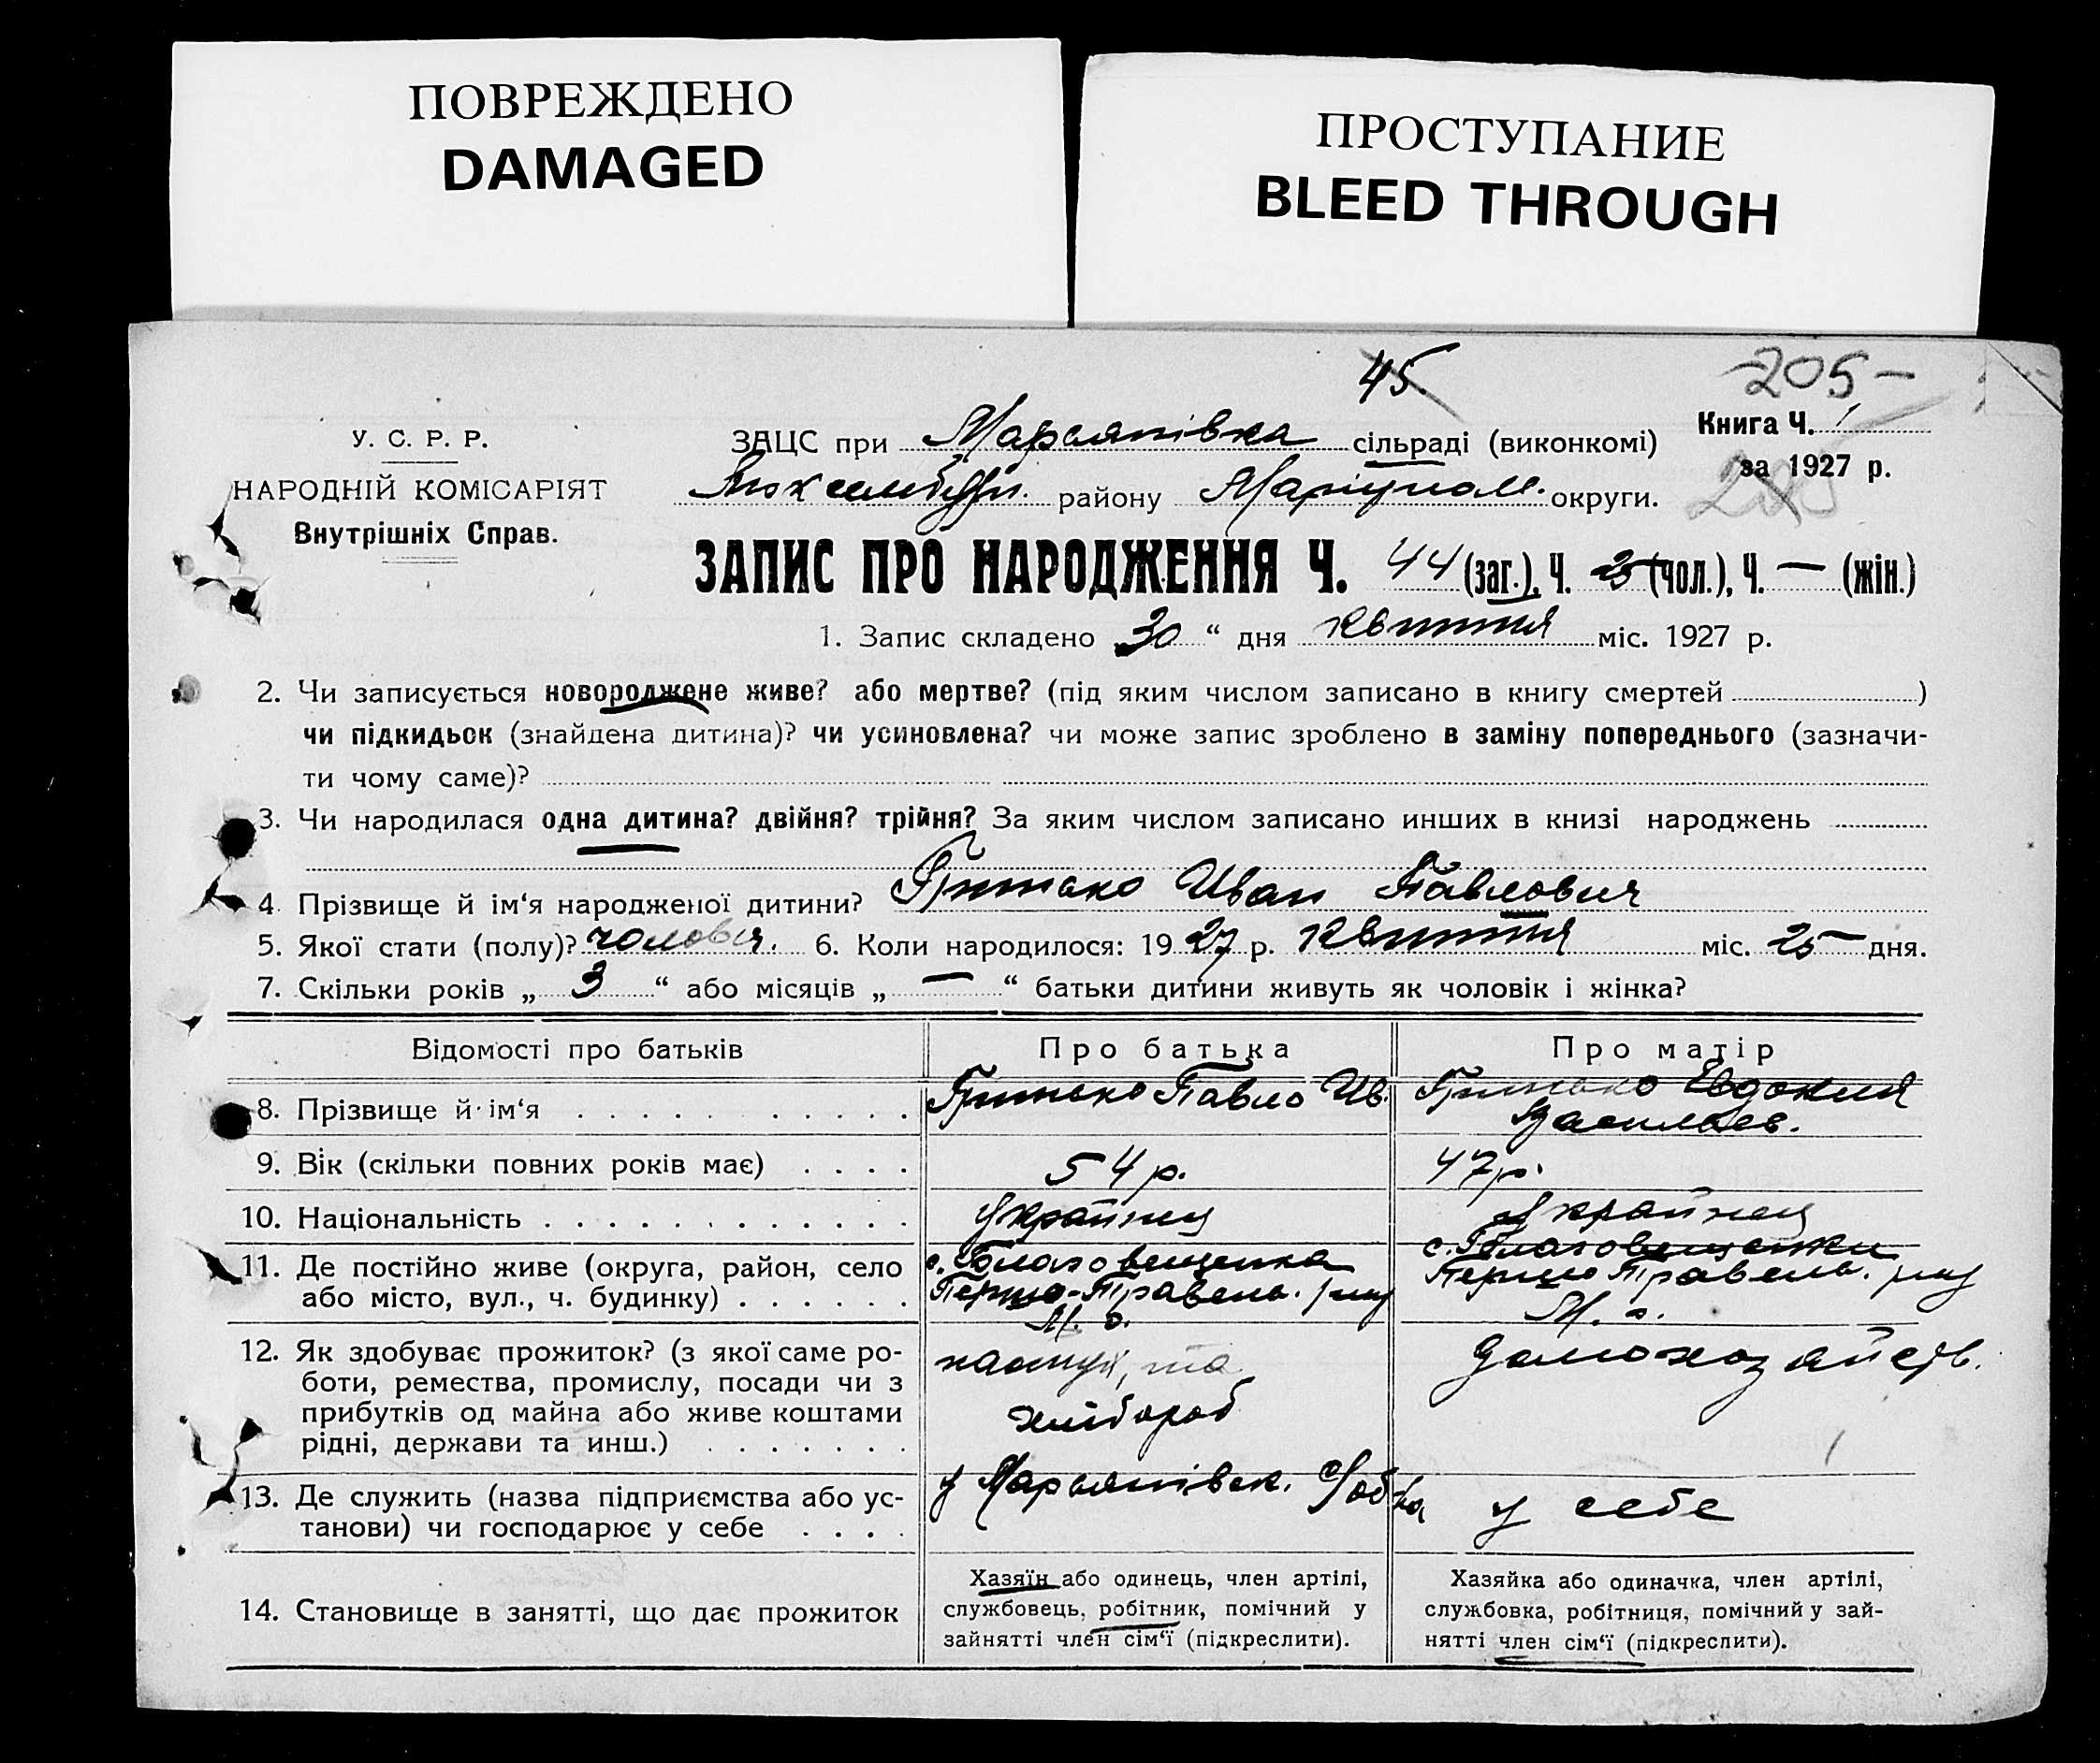 ПОВРЕЖДЕНО
DAMAGED
ПРОСТУПАНИЕ
BLEED THROUGH
45
205 —
Книга Ч. 1
за 1927 р.
205
У. С. Р. Р.
НАРОДНІЙ КОМІСАРІЯТ
Внутрішніх Справ.
ЗАЦС при Марьянівка сільраді (виконкомі)
району Маріупол. округи.
ЗАПИС ПРО НАРОДЖЕННЯ Ч. 44 (заг.), Ч. (чол.), Ч. — (жін.)
1. Запис складено 30 “ дня Квитня міс. 1927 р.
2. Чи записується новороджене живе? або мертве? (під яким числом записано в книгу смертей )
чи підкидьок (знайдена дитина)? чи усиновлена? чи може запис зроблено в заміну попереднього (зазначи-
ти чому саме)?
3. Чи народилася одна дитина? двійня? трійня? За яким числом записано инших в книзі народжень
4. Прізвище й ім‘я народженої дитини? Гритско Иван Павлович
5. Якої стати (полу)? чоловіч. 6. Коли народилося: 1927 р. Квитня міс. 25 — дня.
7. Скільки років „ 3 “ або місяців „ — “ батьки дитини живуть як чоловік і жінка?
Відомості про батьків
Про батька
Про матір
8. Прізвище й ім‘я
Павло Ив.
Евдокия
Васильев.
9. Вік (скільки повних років має)
54 р.
47 р.
10. Національність
Украйнец
Украйнец
11. Де постійно живе (округа, район, село
або місто, вул., ч. будинку)
с. Благовещенка
М. о.
с. Благовещенки
М. о.
12. Як здобуває прожиток? (з якої саме ро-
боти, ремества, промислу, посади чи з
прибутків од майна або живе коштами
рідні, держави та инш.)
та
хлібороб
домохозяйств.
13. Де служить (назва підприємства або ус-
танови) чи господарює у себе
у Марьянівск.
у себе
14. Становище в занятті, що дає прожиток
Хазяїн або одинець, член артілі,
службовець, робітник, помічний у
зайнятті член сім‘ї (підкреслити).
Хазяйка або одиначка, член артілі,
службовка, робітниця, помічний у зай-
нятті член сім‘ї (підкреслити).